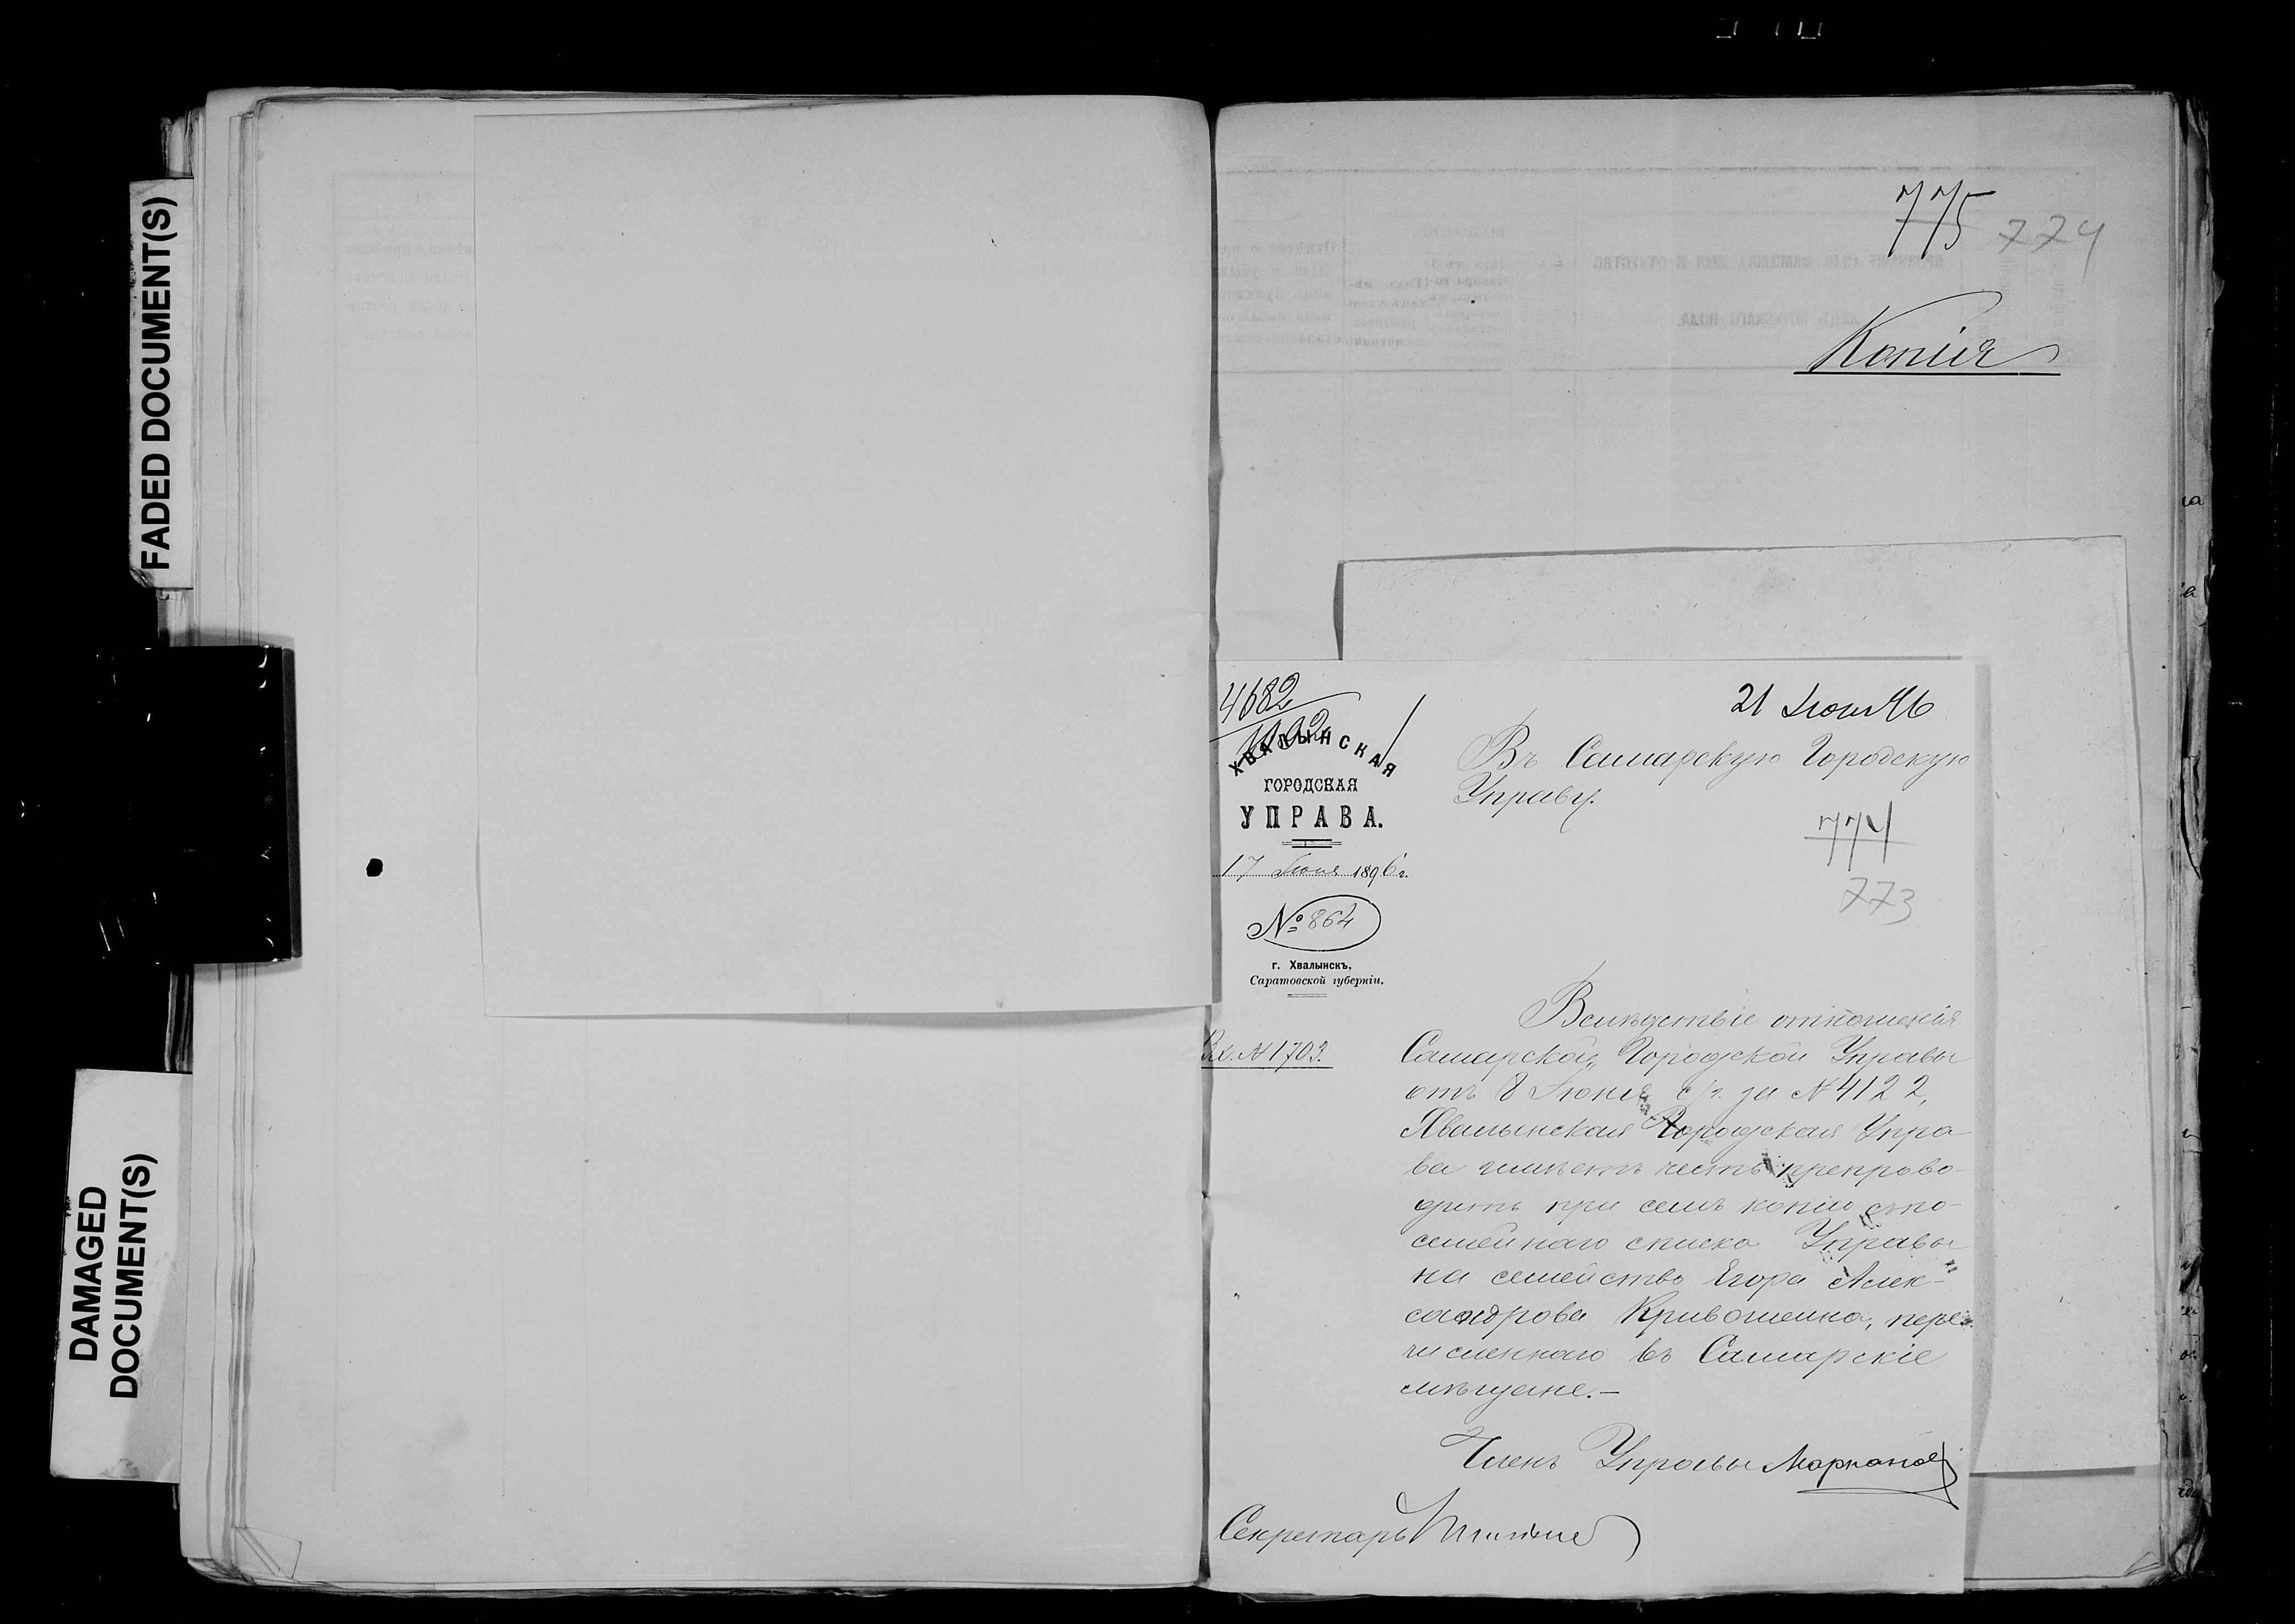 FADED DOCUMENT(S)
DAMAGED
DOCUMENT(S)
775 774
Копія
4682
ХВАЛЫНСКАЯ
ГОРОДСКАЯ
УПРАВА.
17 Іюня 1896 г.
№ 864
г. Хвалынскъ,
Саратовской губерніи.
Вх. № 1703.
21 Іюня 96
Въ Самарскую Городскую
Управу.
774
773
Вслѣдствіе отношенія
Самарской Городской Управы
отъ 8 Іюня с/г. за № 4122,
Хвалынская Городская Упра
ва имѣетъ честь препрово-
дить при семъ копію съ по-
семейнаго списка Управы
на семейство Егора Алек-
сандрова Кривошеина, пере
численнаго въ Самарскіе
мѣщане.—
Членъ Управы
Секретарь